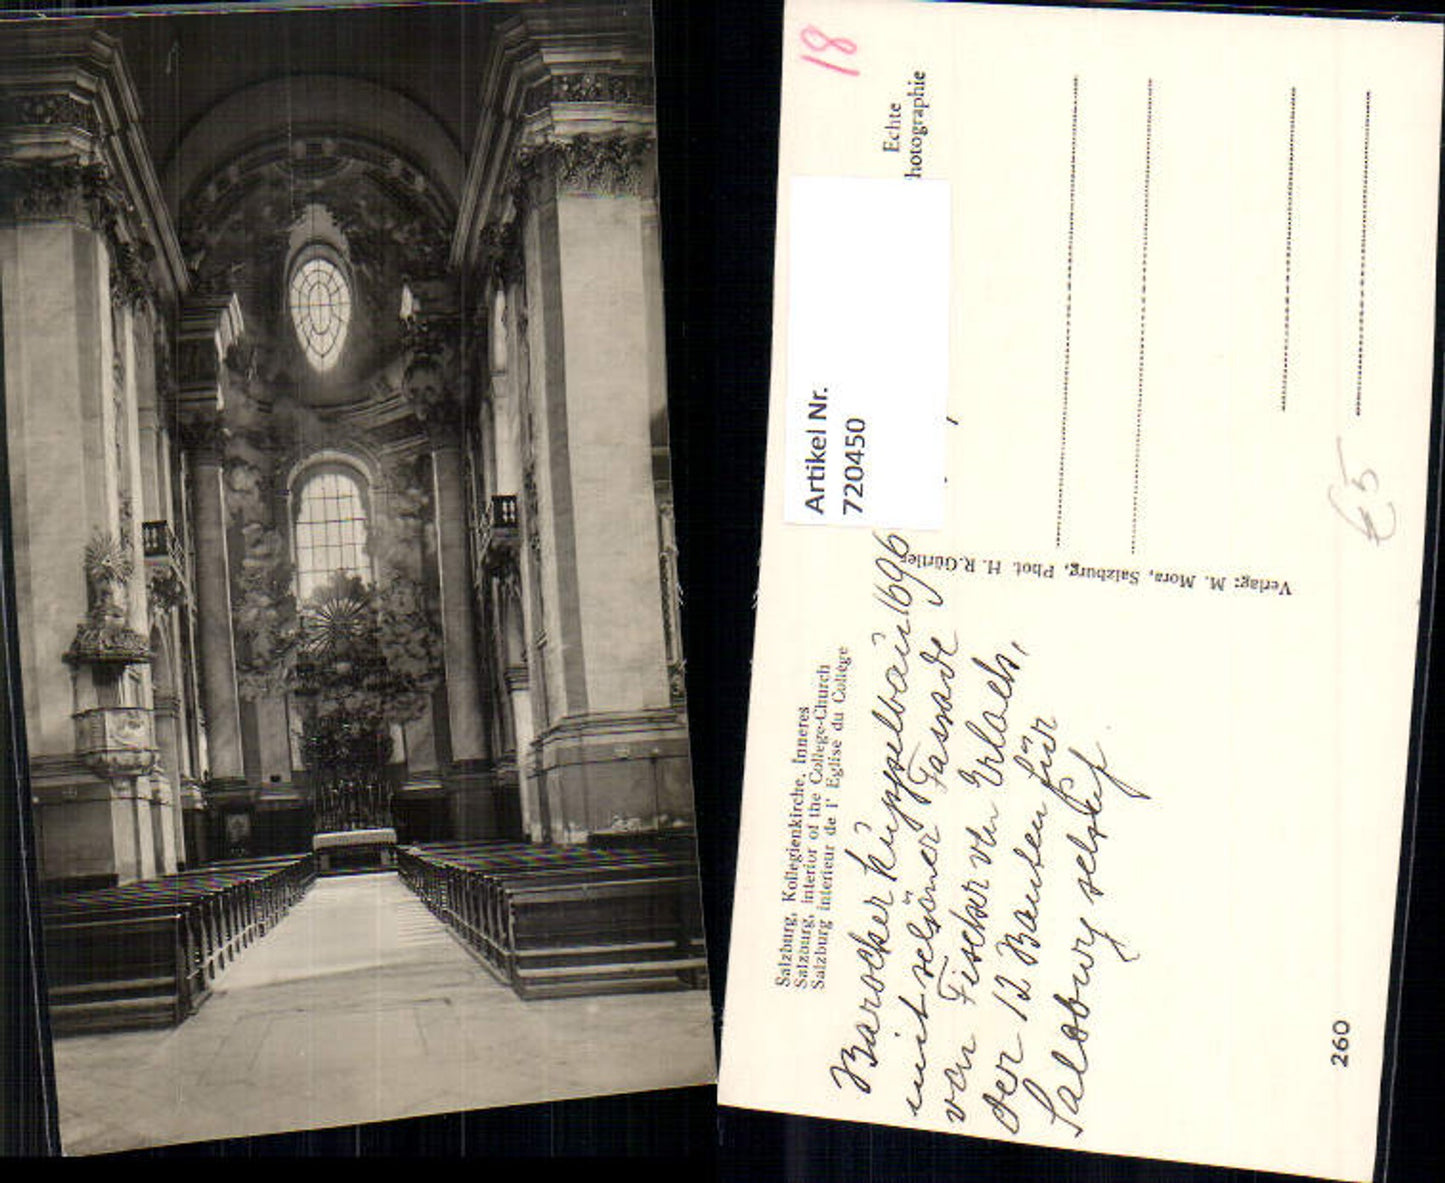 18
Echte
hotographie
Artikel Nr.
720450
Salzburg, Kollegienkirche, Inneres
Salzburg, interior of the College-Church
Salzburg interieur de l' Eglise du Collège
Barocker Kuppelbau 1696
mit schöner Fassade
von Fischer von Erlach,
der 12 Bauten für
Salzburg schuf.
Verlag: M. Mora, Salzburg, Phot. H. R. Gürtler
€5
260